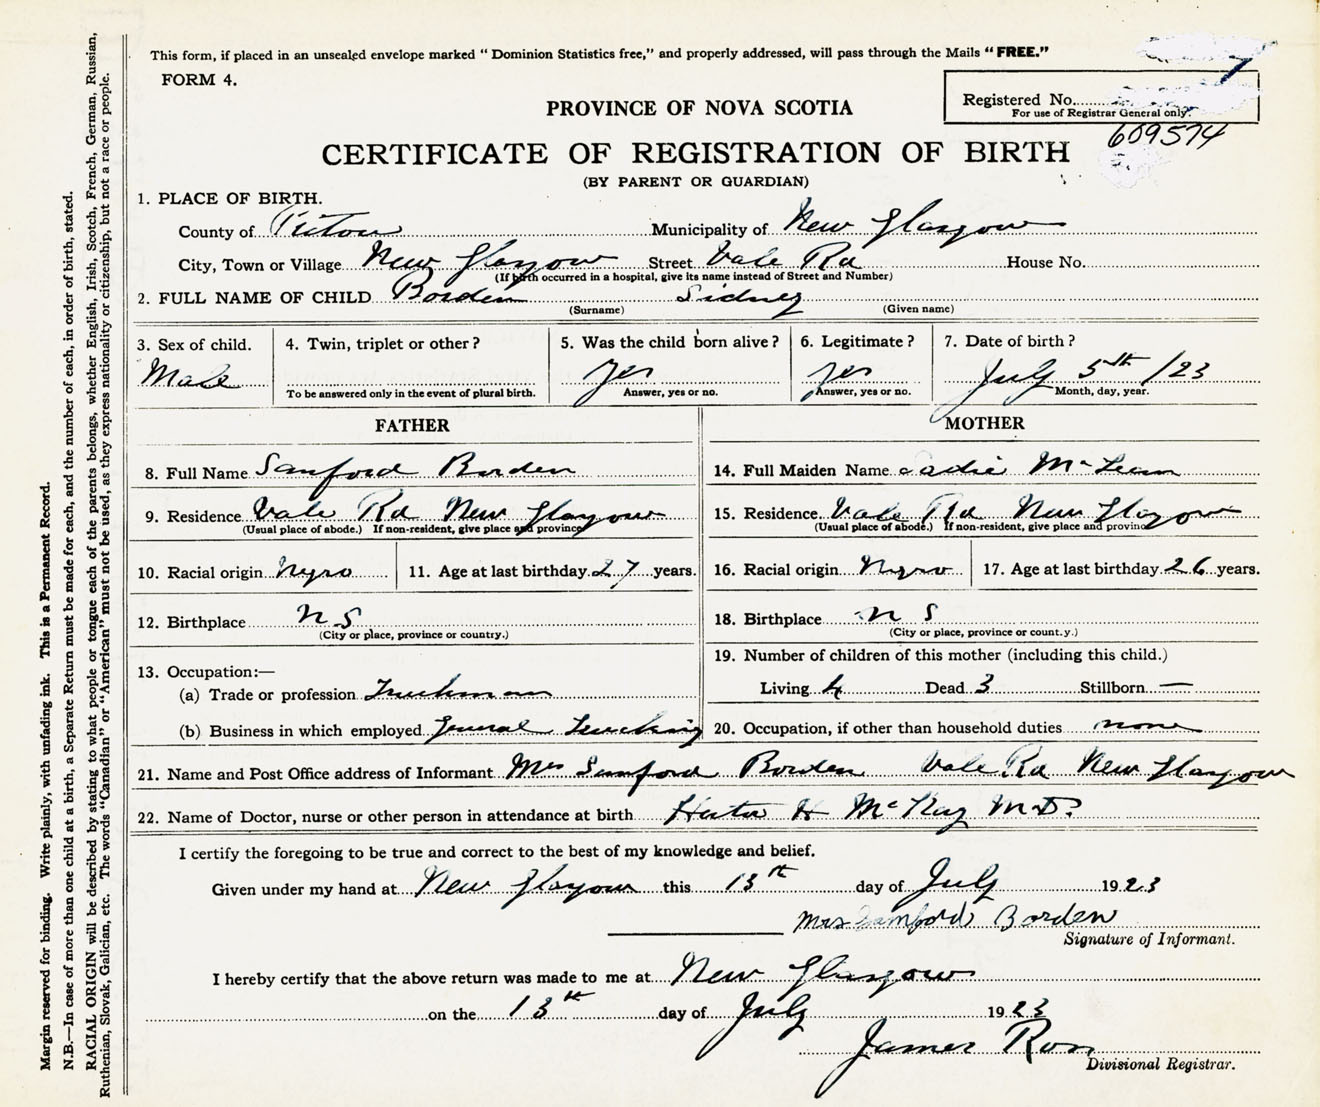 This form, if placed in an unsealed envelope marked "Dominion Statistics free," and properly addressed, will pass through the Mails "FREE."
FORM 4.
Registered No.
For use of Registrar General only.
609574
PROVINCE OF NOVA SCOTIA
CERTIFICATE OF REGISTRATION OF BIRTH
(BY PARENT OR GUARDIAN)
1. PLACE OF BIRTH.
County of Pictou Municipality of New Glasgow
City, Town or Village New Glasgow Street Vale Rd House No.
(If birth occurred in a hospital, give its name instead of Street and Number)
2. FULL NAME OF CHILD Borden Sidney
(Surname) (Given name)
3. Sex of child. Male
4. Twin, triplet or other?
To be answered only in the event of plural birth.
5. Was the child born alive? yes
Answer, yes or no.
6. Legitimate? yes
Answer, yes or no.
7. Date of birth? July 5th /23
Month, day, year.
FATHER
8. Full Name Sanford Borden
9. Residence Vale Rd New Glasgow
(Usual place of abode.) If non-resident, give place and province
10. Racial origin Negro 11. Age at last birthday 27 years.
12. Birthplace N S
(City or place, province or country.)
13. Occupation:—
(a) Trade or profession Truckman
(b) Business in which employed General Trucking
MOTHER
14. Full Maiden Name Sadie
15. Residence Vale Rd New Glasgow
(Usual place of abode.) If non-resident, give place and province
16. Racial origin Negro 17. Age at last birthday 26 years.
18. Birthplace N S
(City or place, province or county.)
19. Number of children of this mother (including this child.)
Living 4 Dead 3 Stillborn —
20. Occupation, if other than household duties none
21. Name and Post Office address of Informant Mrs Sanford Borden Vale Rd New Glasgow
22. Name of Doctor, nurse or other person in attendance at birth H McKay M.D.
I certify the foregoing to be true and correct to the best of my knowledge and belief.
Given under my hand at New Glasgow this 13th day of July 1923
Mrs Samford Borden
Signature of Informant.
I hereby certify that the above return was made to me at New Glasgow
on the 13th day of July 1923
James Ross
Divisional Registrar.
Margin reserved for binding. Write plainly, with unfading ink. This is a Permanent Record.
N.B.—In case of more than one child at a birth, a Separate Return must be made for each, and the number of each, in order of birth, stated.
RACIAL ORIGIN will be described by stating to what people or tongue each of the parents belongs, whether English, Irish, Scotch, French, German, Russian,
Ruthenian, Slovak, Galician, etc. The words "Canadian" or "American" must not be used, as they express nationality or citizenship, but not a race or people.